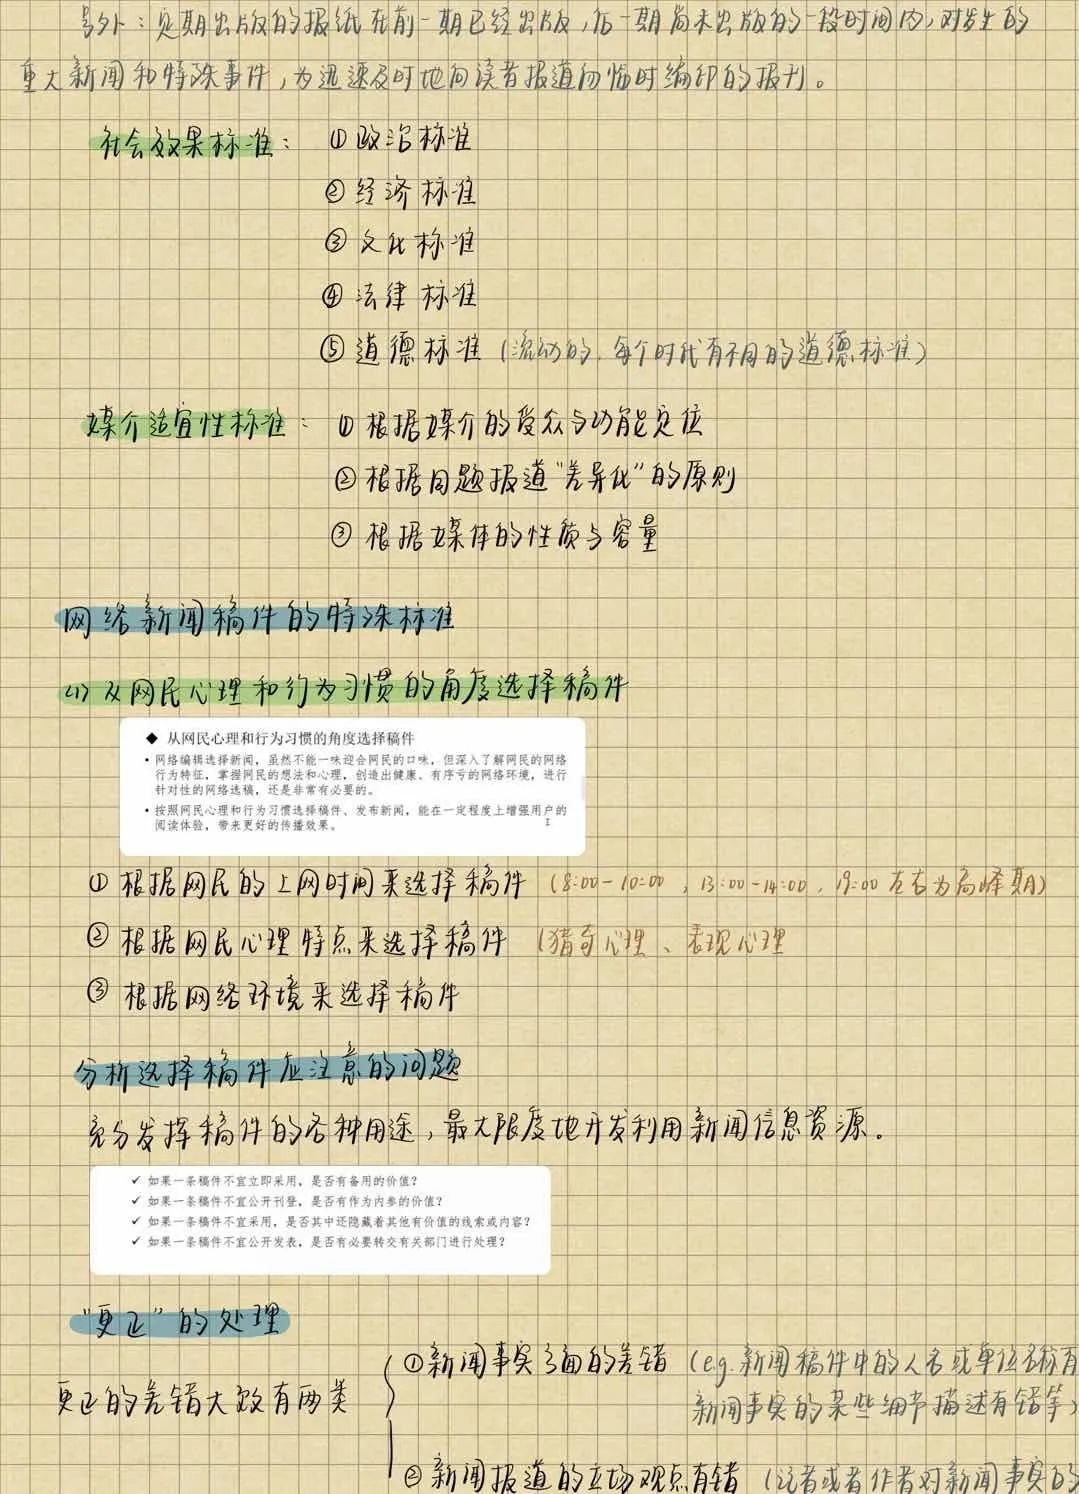 号外：定期出版的报纸在前一期已经出版，后一期尚未出版的一段时间内，对发生的
重大新闻和特殊事件，为迅速及时地向读者报道而临时编印的报刊。
社会效果标准： ①政治标准
②经济标准
③文化标准
④法律标准
⑤道德标准（流动的，每个时代有不同的道德标准）
媒介适宜性标准： ①根据媒介的受众与功能定位
②根据同题报道“差异化”的原则
③根据媒体的性质与容量
网络新闻稿件的特殊标准
(1)从网民心理和行为习惯的角度选择稿件
◆ 从网民心理和行为习惯的角度选择稿件
• 网络编辑选择新闻，虽然不能一味迎合网民的口味，但深入了解网民的网络
行为特征，掌握网民的想法和心理，创造出健康、有序亏的网络环境，进行
针对性的网络选稿，还是非常有必要的。
• 按照网民心理和行为习惯选择稿件、发布新闻，能在一定程度上增强用户的
阅读体验，带来更好的传播效果。
①根据网民的上网时间来选择稿件（8:00-10:00，13:00-14:00，19:00左右为高峰期）
②根据网民心理特点来选择稿件（猎奇心理、表现心理
③根据网络环境来选择稿件
分析选择稿件应注意的问题
充分发挥稿件的各种用途，最大限度地开发利用新闻信息资源。
✓ 如果一条稿件不宜立即采用，是否有备用的价值？
✓ 如果一条稿件不宜公开刊登，是否有作为内参的价值？
✓ 如果一条稿件不宜采用，是否其中还隐藏着其他有价值的线索或内容？
✓ 如果一条稿件不宜公开发表，是否有必要转交有关部门进行处理？
“更正”的处理
①新闻事实方面的差错（e.g.新闻稿件中的人名或单位名称有
更正的差错大致有两类
新闻事实的某些细节描述有错等）
②新闻报道的立场观点有错（记者或者作者对新闻事实的